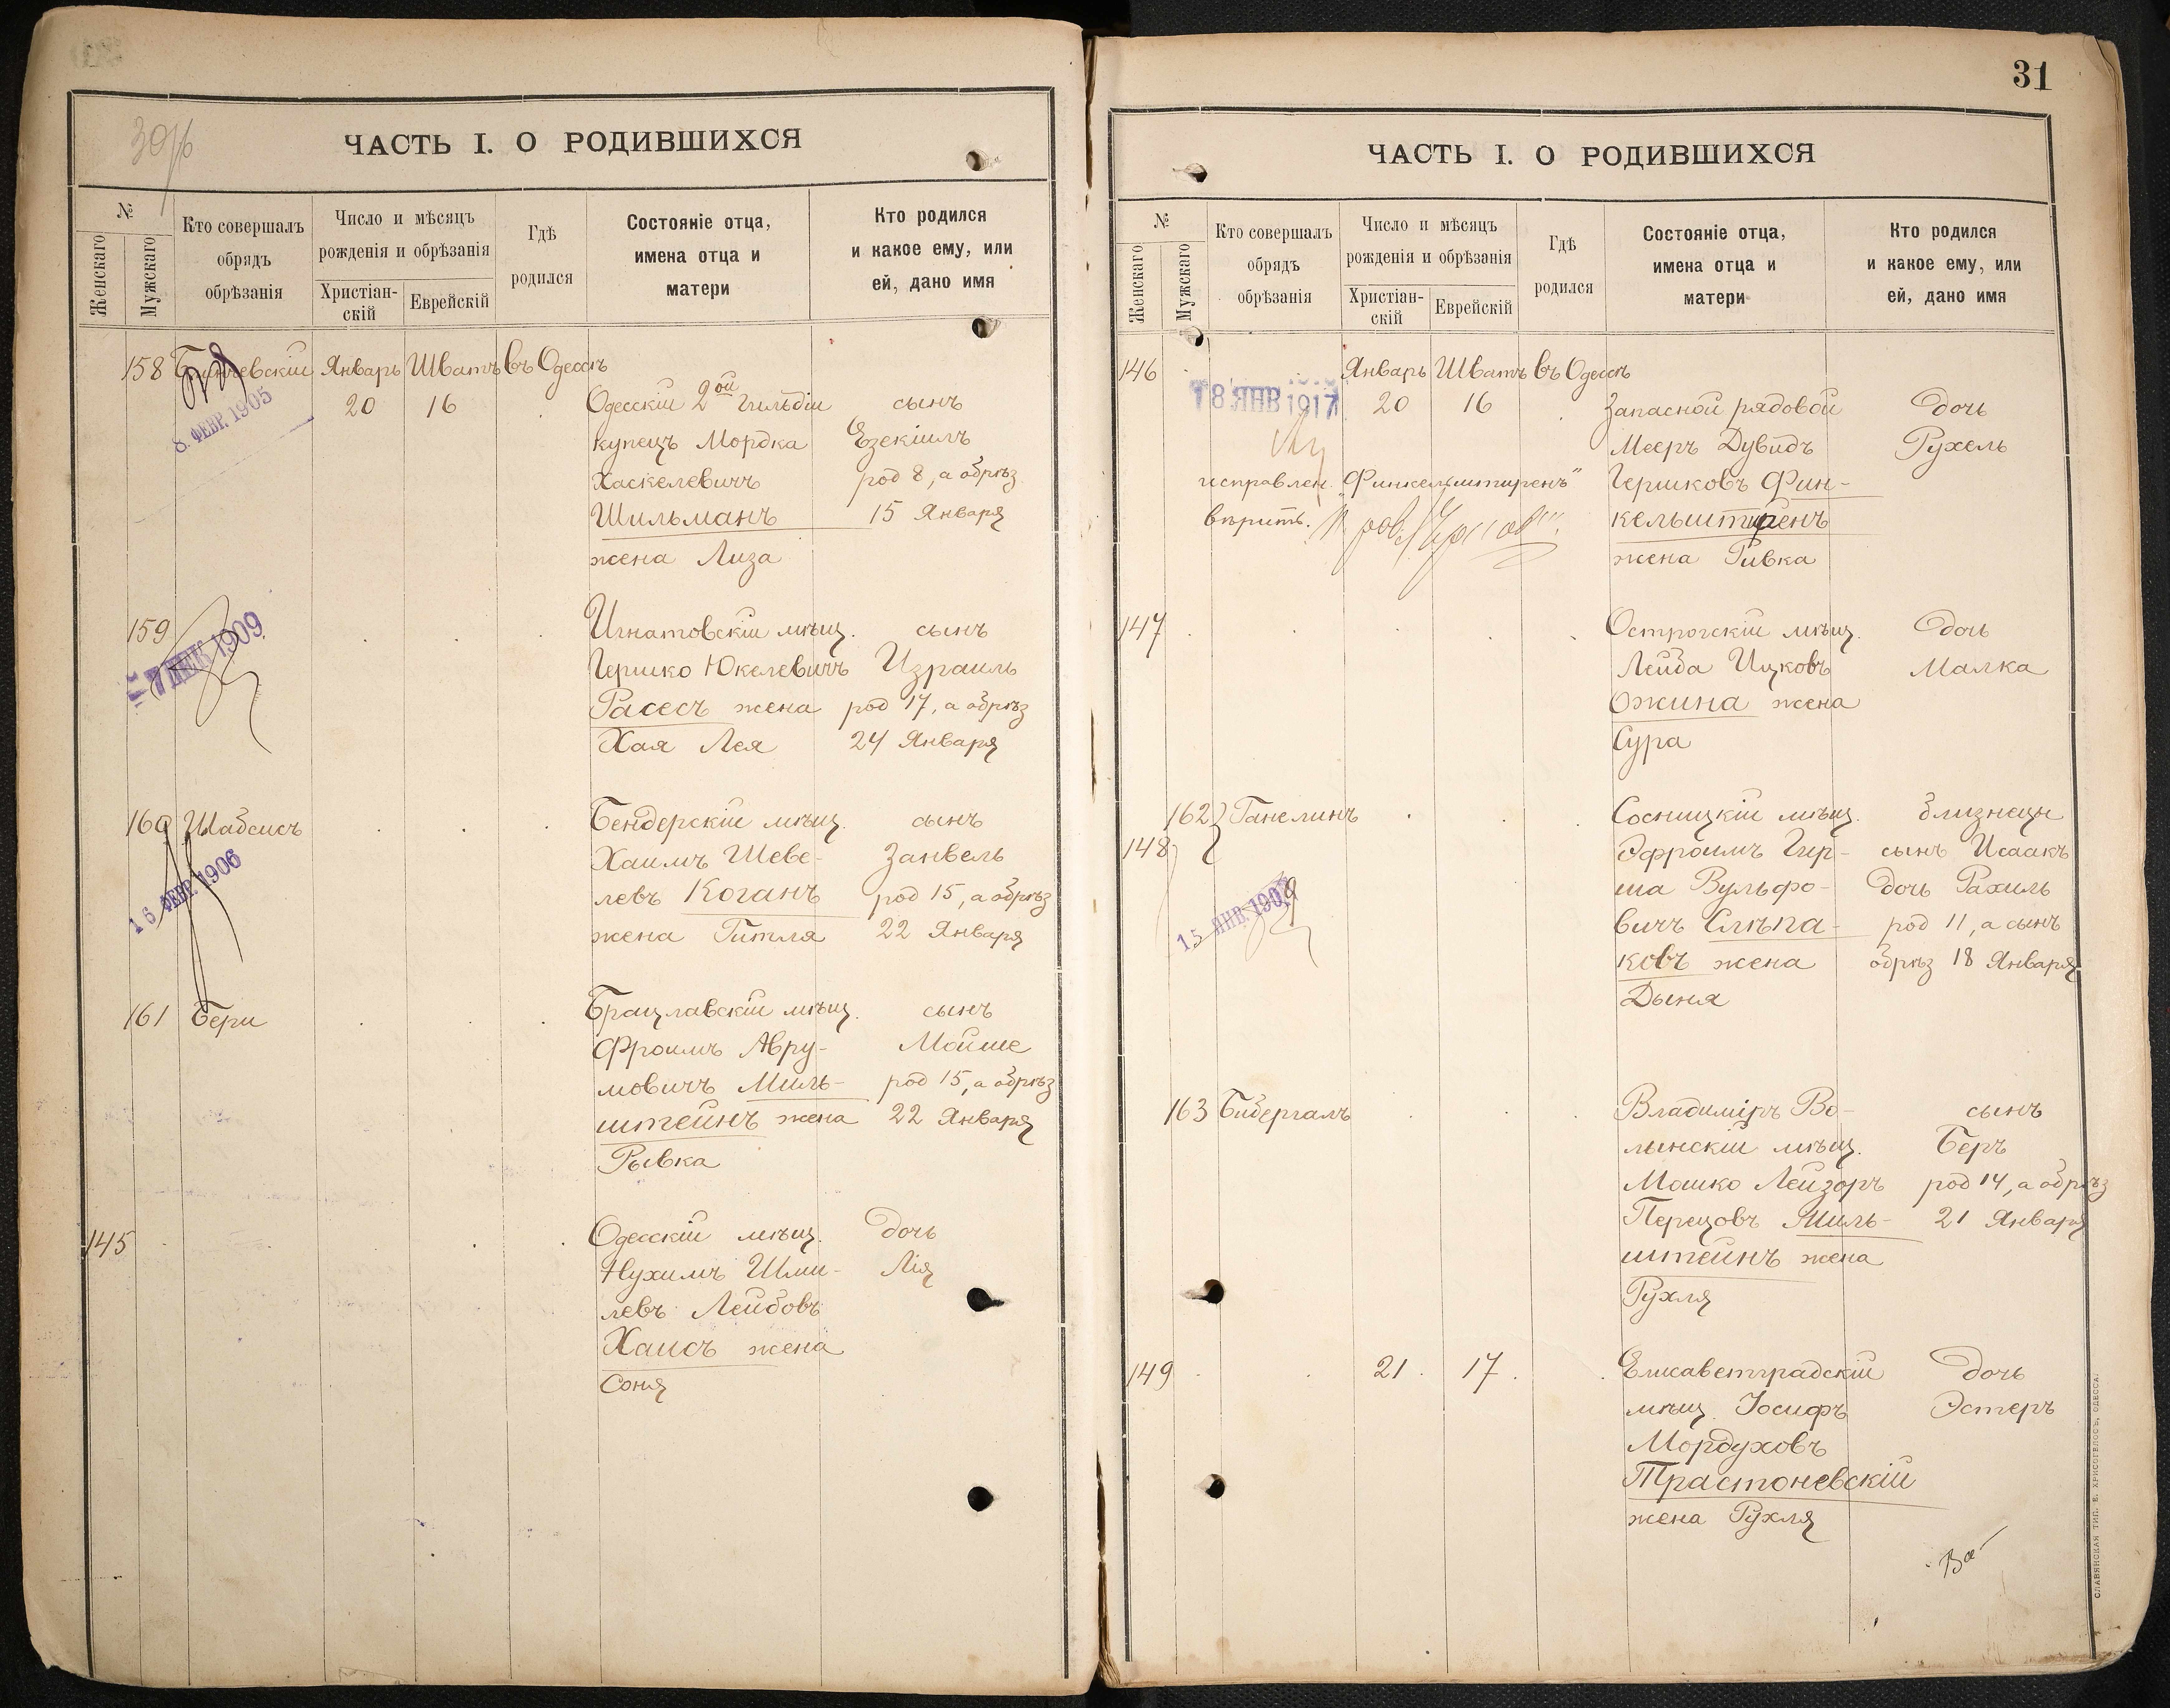 30 об
ЧАСТЬ I. О РОДИВШИХСЯ
№
Женскаго
Мужскаго
Кто совершалъ
обрядъ
обрѣзанія
Число и мѣсяцъ
рожденія и обрѣзанія
Христіан-
скій
Еврейскій
Гдѣ
родился
Состояніе отца,
имена отца и
матери
Кто родился
и какое ему, или
ей, дано имя
158 Январь Шватъ въ Одессѣ
8. ФЕВР. 1905
20 16 Одесскій 2ой гильдіи сынъ
купецъ Мордка Езекіилъ
Хаскелевичъ род 8, а обрѣз
Шильманъ 15 Января
жена Лиза
159 Игнатовскій мѣщ. сынъ
1909
Гершко Юкелевичъ Израиль
Расесъ жена род 17, а обрѣз
Хая Лея 24 Января
160 Шабсисъ Бендерскій мѣщ. сынъ
16 ФЕВР. 1906
Хаимъ Шеве- Занвель
левъ Коганъ род 15, а обрѣз
жена Гитля 22 Января
161 Бери Брацлавскій мѣщ. сынъ
Фроимъ Авру- Мойше
мовичъ Миль- род 15, а обрѣз
штейнъ жена 22 Января
Рывка
145 Одесскій мѣщ. дочь
Нухимъ Шми- Лія
левъ Лейбовъ
Хаисъ жена
Соня
31
ЧАСТЬ I. О РОДИВШИХСЯ
№
Женскаго
Мужскаго
Кто совершалъ
обрядъ
обрѣзанія
Число и мѣсяцъ
рожденія и обрѣзанія
Христіан-
скій
Еврейскій
Гдѣ
родился
Состояніе отца,
имена отца и
матери
Кто родился
и какое ему, или
ей, дано имя
146 Январь Шватъ въ Одессѣ
18 ЯНВ 1917 20 16 Запасной рядовой дочь
Мееръ Дувидъ Рухель
исправлен. "Финкельштиренъ" Гершковъ Фин-
вѣрить. кельштиренъ
жена Ривка
147 Острогскій мѣщ. дочь
Лейба Ицковъ Малка
Ожина жена
Сура
162 Ганелинъ Сосницкій мѣщ. близнецы
148 Эфроимъ Гир- сынъ Исаакъ
15 ЯНВ. 1909
ша Вульфо- дочь Рахиль
вичъ Слѣпа- род 11, а сынъ
ковъ жена обрѣз 18 Января
Дыня
163 Бибергалъ Владиміръ Во- сынъ
лынскій мѣщ. Беръ
Мошко Лейзоръ род 14, а обрѣз
Перецовъ Миль- 21 Января
штейнъ жена
Рухля
149 21 17 Елисаветградскій дочь
мѣщ. Іосифъ Эстеръ
Мордуховъ
Трастоневскій
жена Рухля
СЛАВЯНСКАЯ ТИП. Е. ХРИСОГЕЛОСЪ, ОДЕССА.